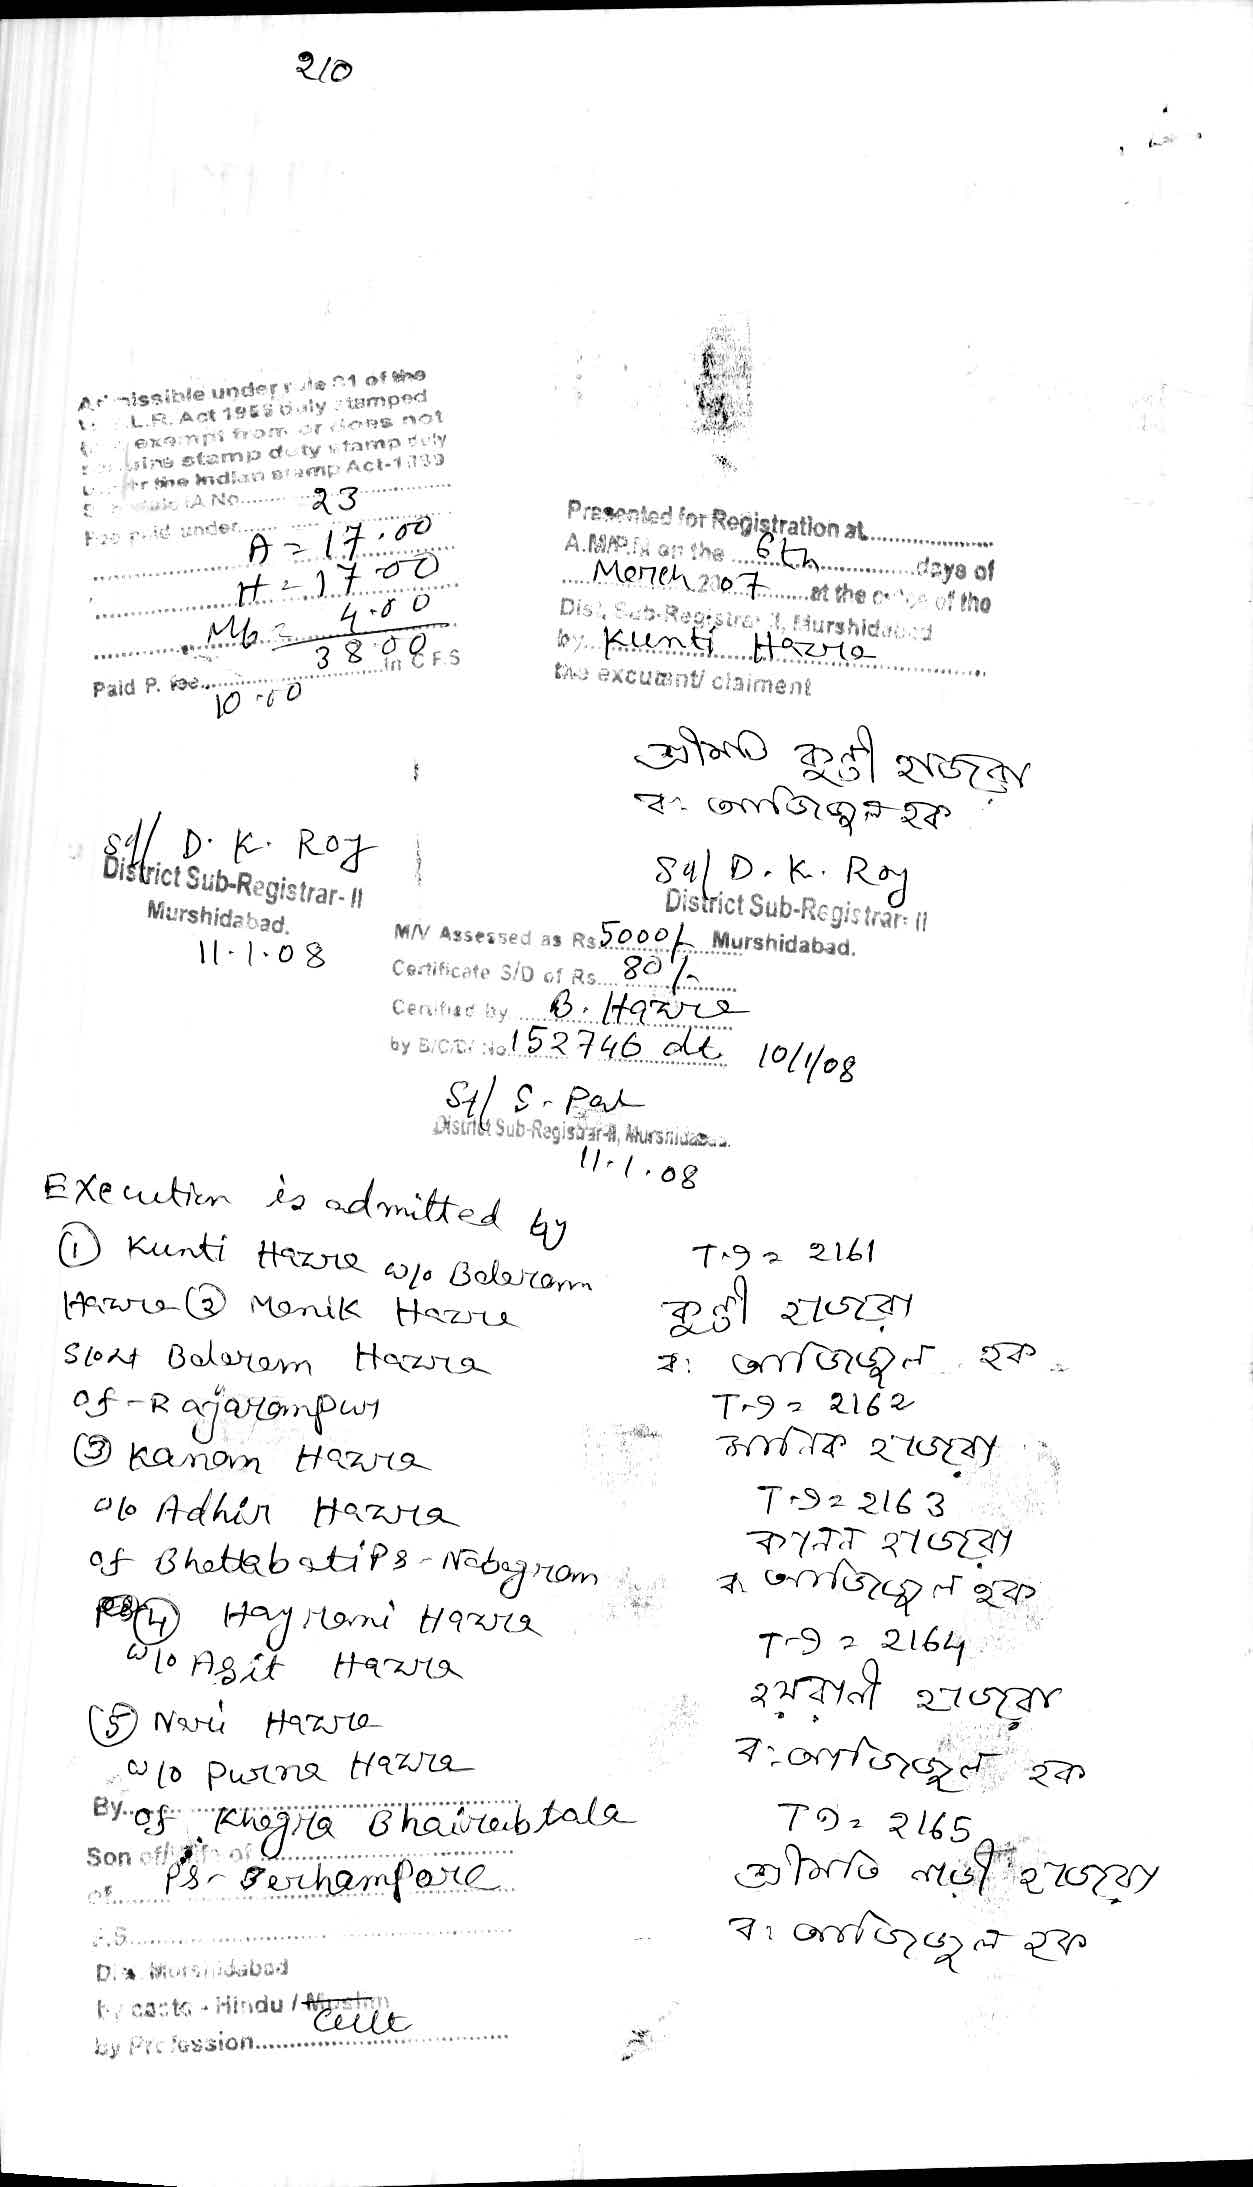 210
Admissible under rule 21 of the
L.R. Act 1955 duly stamped
exempt from or does not
require stamp duty stamp duty
under the Indian stamp Act-1899
Schedule IA No. 23
Fee paid under
A = 17.00
H = 17.00
Mb = 4.00
38.00 in C.F.S
Paid P. fee 10.00
Presented for Registration at
A.M/P.M on the 6th days of
March 2007 at the office of the
Dist. Sub-Registrar-II, Murshidabad
by Kunti Hazra
the excutant/ claiment
শ্রীমতি কুন্তী হাজরা
ব: আজিজুল হক
Sd/ D. K. Roy
District Sub-Registrar-II
Murshidabad.
11.1.08
Sd/ D. K. Roy
District Sub-Registrar-II
Murshidabad.
M/V Assessed as Rs 5000/-
Certificate S/D of Rs. 80/-
Certified by B. Hazra
by B/C/D/ No. 152746 dt 10/1/08
Sd/ S. Pal
District Sub-Registrar-II, Murshidabad.
11.1.08
Execution is admitted by
① Kunti Hazra w/o Balaram
Hazra ② Manik Hazra
S/o Lt Balaram Hazra
of - Rajarampur
③ Kanan Hazra
w/o Adhir Hazra
of Bhattabati PS - Nabagram
④ Hayrani Hazra
w/o Asit Hazra
⑤ Nari Hazra
w/o Purna Hazra
By of Khagra Bhairabtala
Son of/wife of
of PS - Berhampore
P.S.
Dist. Murshidabad
by caste - Hindu / Muslim
by Profession Cult
T.9 = 2161
কুন্তী হাজরা
ব: আজিজুল হক
T.9 = 2162
মানিক হাজরা
T.9 = 2163
কানন হাজরা
ব: আজিজুল হক
T-9 = 2164
হয়রানী হাজরা
ব: আজিজুল হক
T9 = 2165
শ্রীমতি নাড়ী হাজরা
ব: আজিজুল হক